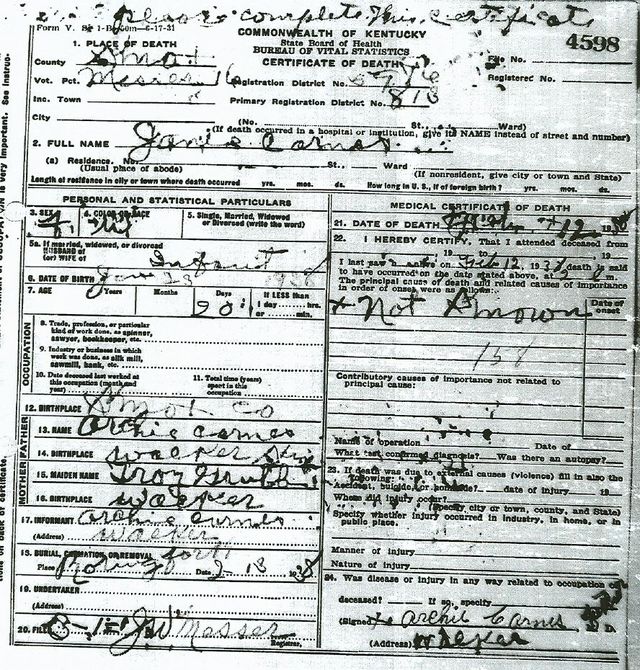 please complete this certificate
Form V. S. 1-B
COMMONWEALTH OF KENTUCKY
State Board of Health
BUREAU OF VITAL STATISTICS
CERTIFICATE OF DEATH
4598
File No.
Registered No.
1. PLACE OF DEATH
County Knox
Vot. Pct. 16 Registration District No.
Inc. Town Primary Registration District No.
City (No. St., Ward)
(If death occurred in a hospital or institution, give its NAME instead of street and number)
2. FULL NAME Carnes
(a) Residence. No. St., Ward
(Usual place of abode) (If nonresident, give city or town and State)
Length of residence in city or town where death occurred yrs. mos. ds. How long in U. S., if of foreign birth? yrs. mos. ds.
PERSONAL AND STATISTICAL PARTICULARS
3. SEX F 4. COLOR OR RACE W 5. Single, Married, Widowed
or Divorced (write the word)
5a. If married, widowed, or divorced
HUSBAND of
(or) WIFE of Infant
6. DATE OF BIRTH Jan 23 1938
7. AGE Years Months Days If LESS than
1 day hrs.
or min.
OCCUPATION
8. Trade, profession, or particular
kind of work done, as spinner,
sawyer, bookkeeper, etc.
9. Industry or business in which
work was done, as silk mill,
sawmill, bank, etc.
10. Date deceased last worked at
this occupation (month and
year)
11. Total time (years)
spent in this
occupation
12. BIRTHPLACE Knox Co
FATHER
13. NAME Archie Carnes
14. BIRTHPLACE Walker
MOTHER
15. MAIDEN NAME Troy Grubb
16. BIRTHPLACE Walker
17. INFORMANT Archie Carnes
(Address) Walker
18. BURIAL, CREMATION OR REMOVAL
Place Date 2-13 1938
19. UNDERTAKER
(Address)
20. FILED J W Messer
Registrar.
MEDICAL CERTIFICATE OF DEATH
21. DATE OF DEATH 12 1938
22. I HEREBY CERTIFY, That I attended deceased from
, 19 to , 19
I last saw alive on Feb 12, 1938, death is said
to have occurred on the date stated above,
The principal cause of death and related causes of importance
in order of onset were as follows:
Date of
onset
Not Known
158
Contributory causes of importance not related to
principal cause:
Name of operation Date of
What test confirmed diagnosis? Was there an autopsy?
23. If death was due to external causes (violence) fill in also the
following:
Accident, suicide, or homicide? date of injury 19
Where did injury occur?
(Specify city or town, county, and State)
Specify whether injury occurred in industry, in home, or in
public place.
Manner of injury
Nature of injury
24. Was disease or injury in any way related to occupation of
deceased? If so, specify
(Signed) Archie Carnes M. D.
(Address) Walker